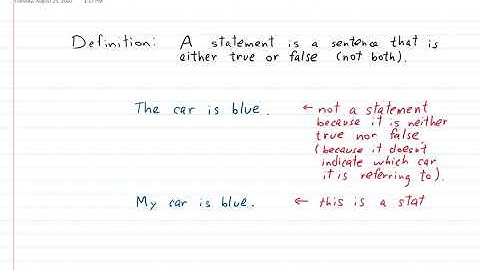 Tuesday, August 25, 2020
Definition: A statement is a sentence that is
either true or false (not both).
The car is blue. ← not a statement
because it is neither
true nor false
(because it doesn't
indicate which car
it is referring to).
My car is blue. ← this is a stat